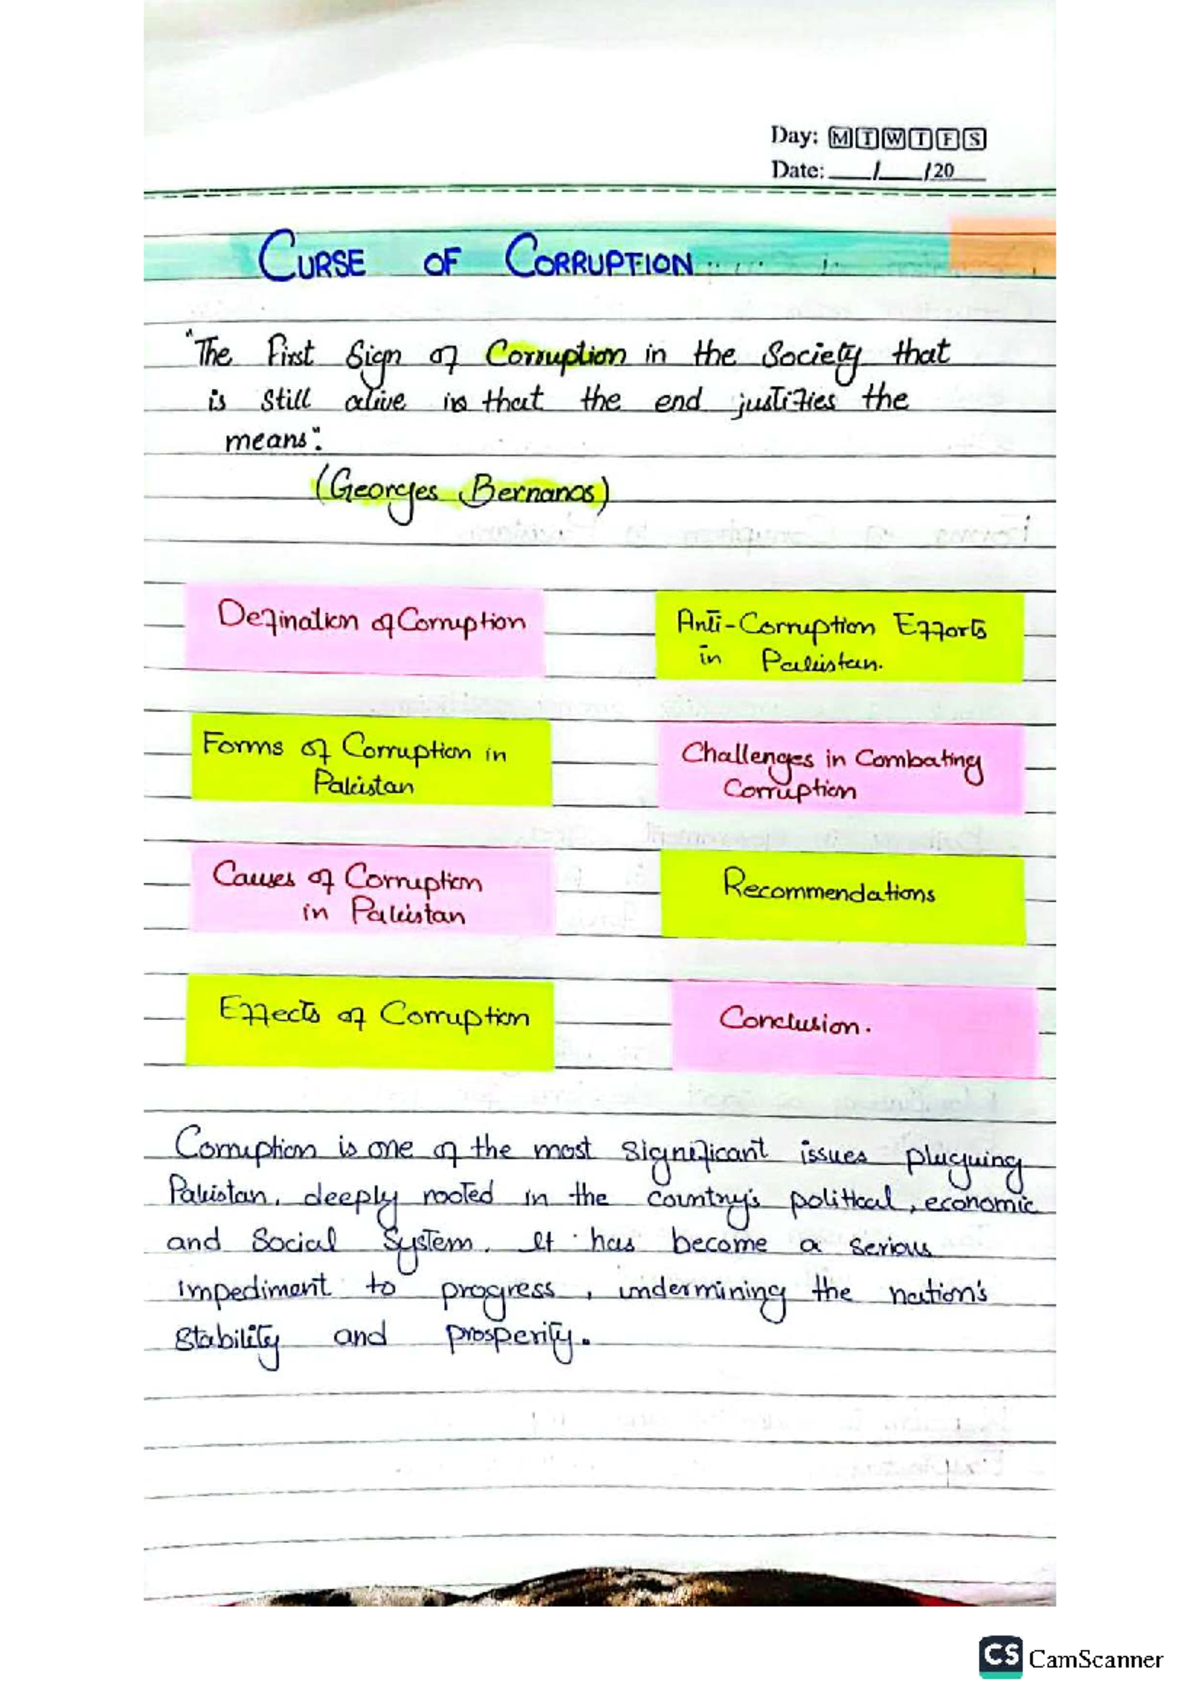 Day: M T W T F S
Date: ___/___/20___
CURSE OF CORRUPTION
"The First Sign of Corruption in the Society that
is still alive is that the end justifies the
means".
(Georges Bernanos)
Defination of Corruption
Anti-Corruption Efforts
in Pakistan.
Forms of Corruption in
Pakistan
Challenges in Combating
Corruption
Causes of Corruption
in Pakistan
Recommendations
Effects of Corruption
Conclusion.
Corruption is one of the most significant issues plaguing
Pakistan, deeply rooted in the country's political, economic
and Social System. It has become a serious
impediment to progress, undermining the nation's
stability and prosperity.
CS CamScanner